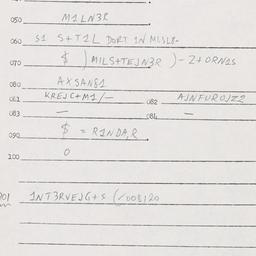 050 M1LN3R
060 S1 S+T1L DORT 1N M1SLR-
070 $ ) MILS+TEJN3R ) - Z+ORN1S
080 AXSAN81
081 KREJC+M1/- 082 AJNFUROJZ2
083 — 084 —
090 $ = R1NDA,R
100 0
101 1NT3RVEJG+S (/008120